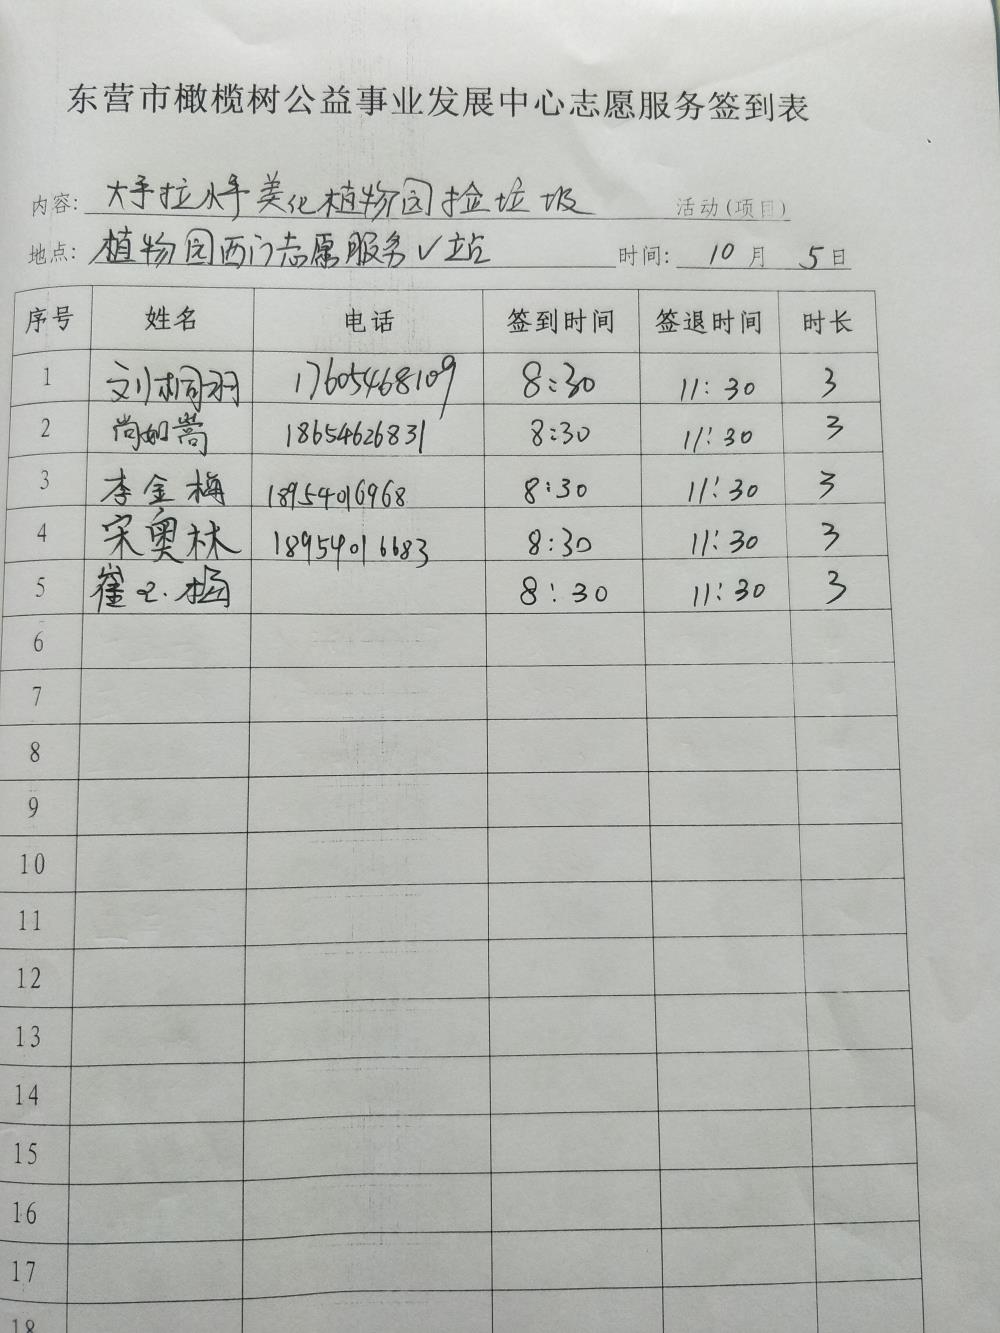 东营市橄榄树公益事业发展中心志愿服务签到表
内容: 大手拉小手美化植物园捡垃圾 活动(项目)
地点: 植物园西门志愿服务V站 时间: 10月 5日
序号 姓名 电话 签到时间 签退时间 时长
1 刘桐羽 17605468109 8:30 11:30 3
2 尚如嵩 18654626831 8:30 11:30 3
3 李金梅 18954016968 8:30 11:30 3
4 宋奥林 18954016683 8:30 11:30 3
5 崔 8:30 11:30 3
6
7
8
9
10
11
12
13
14
15
16
17
18